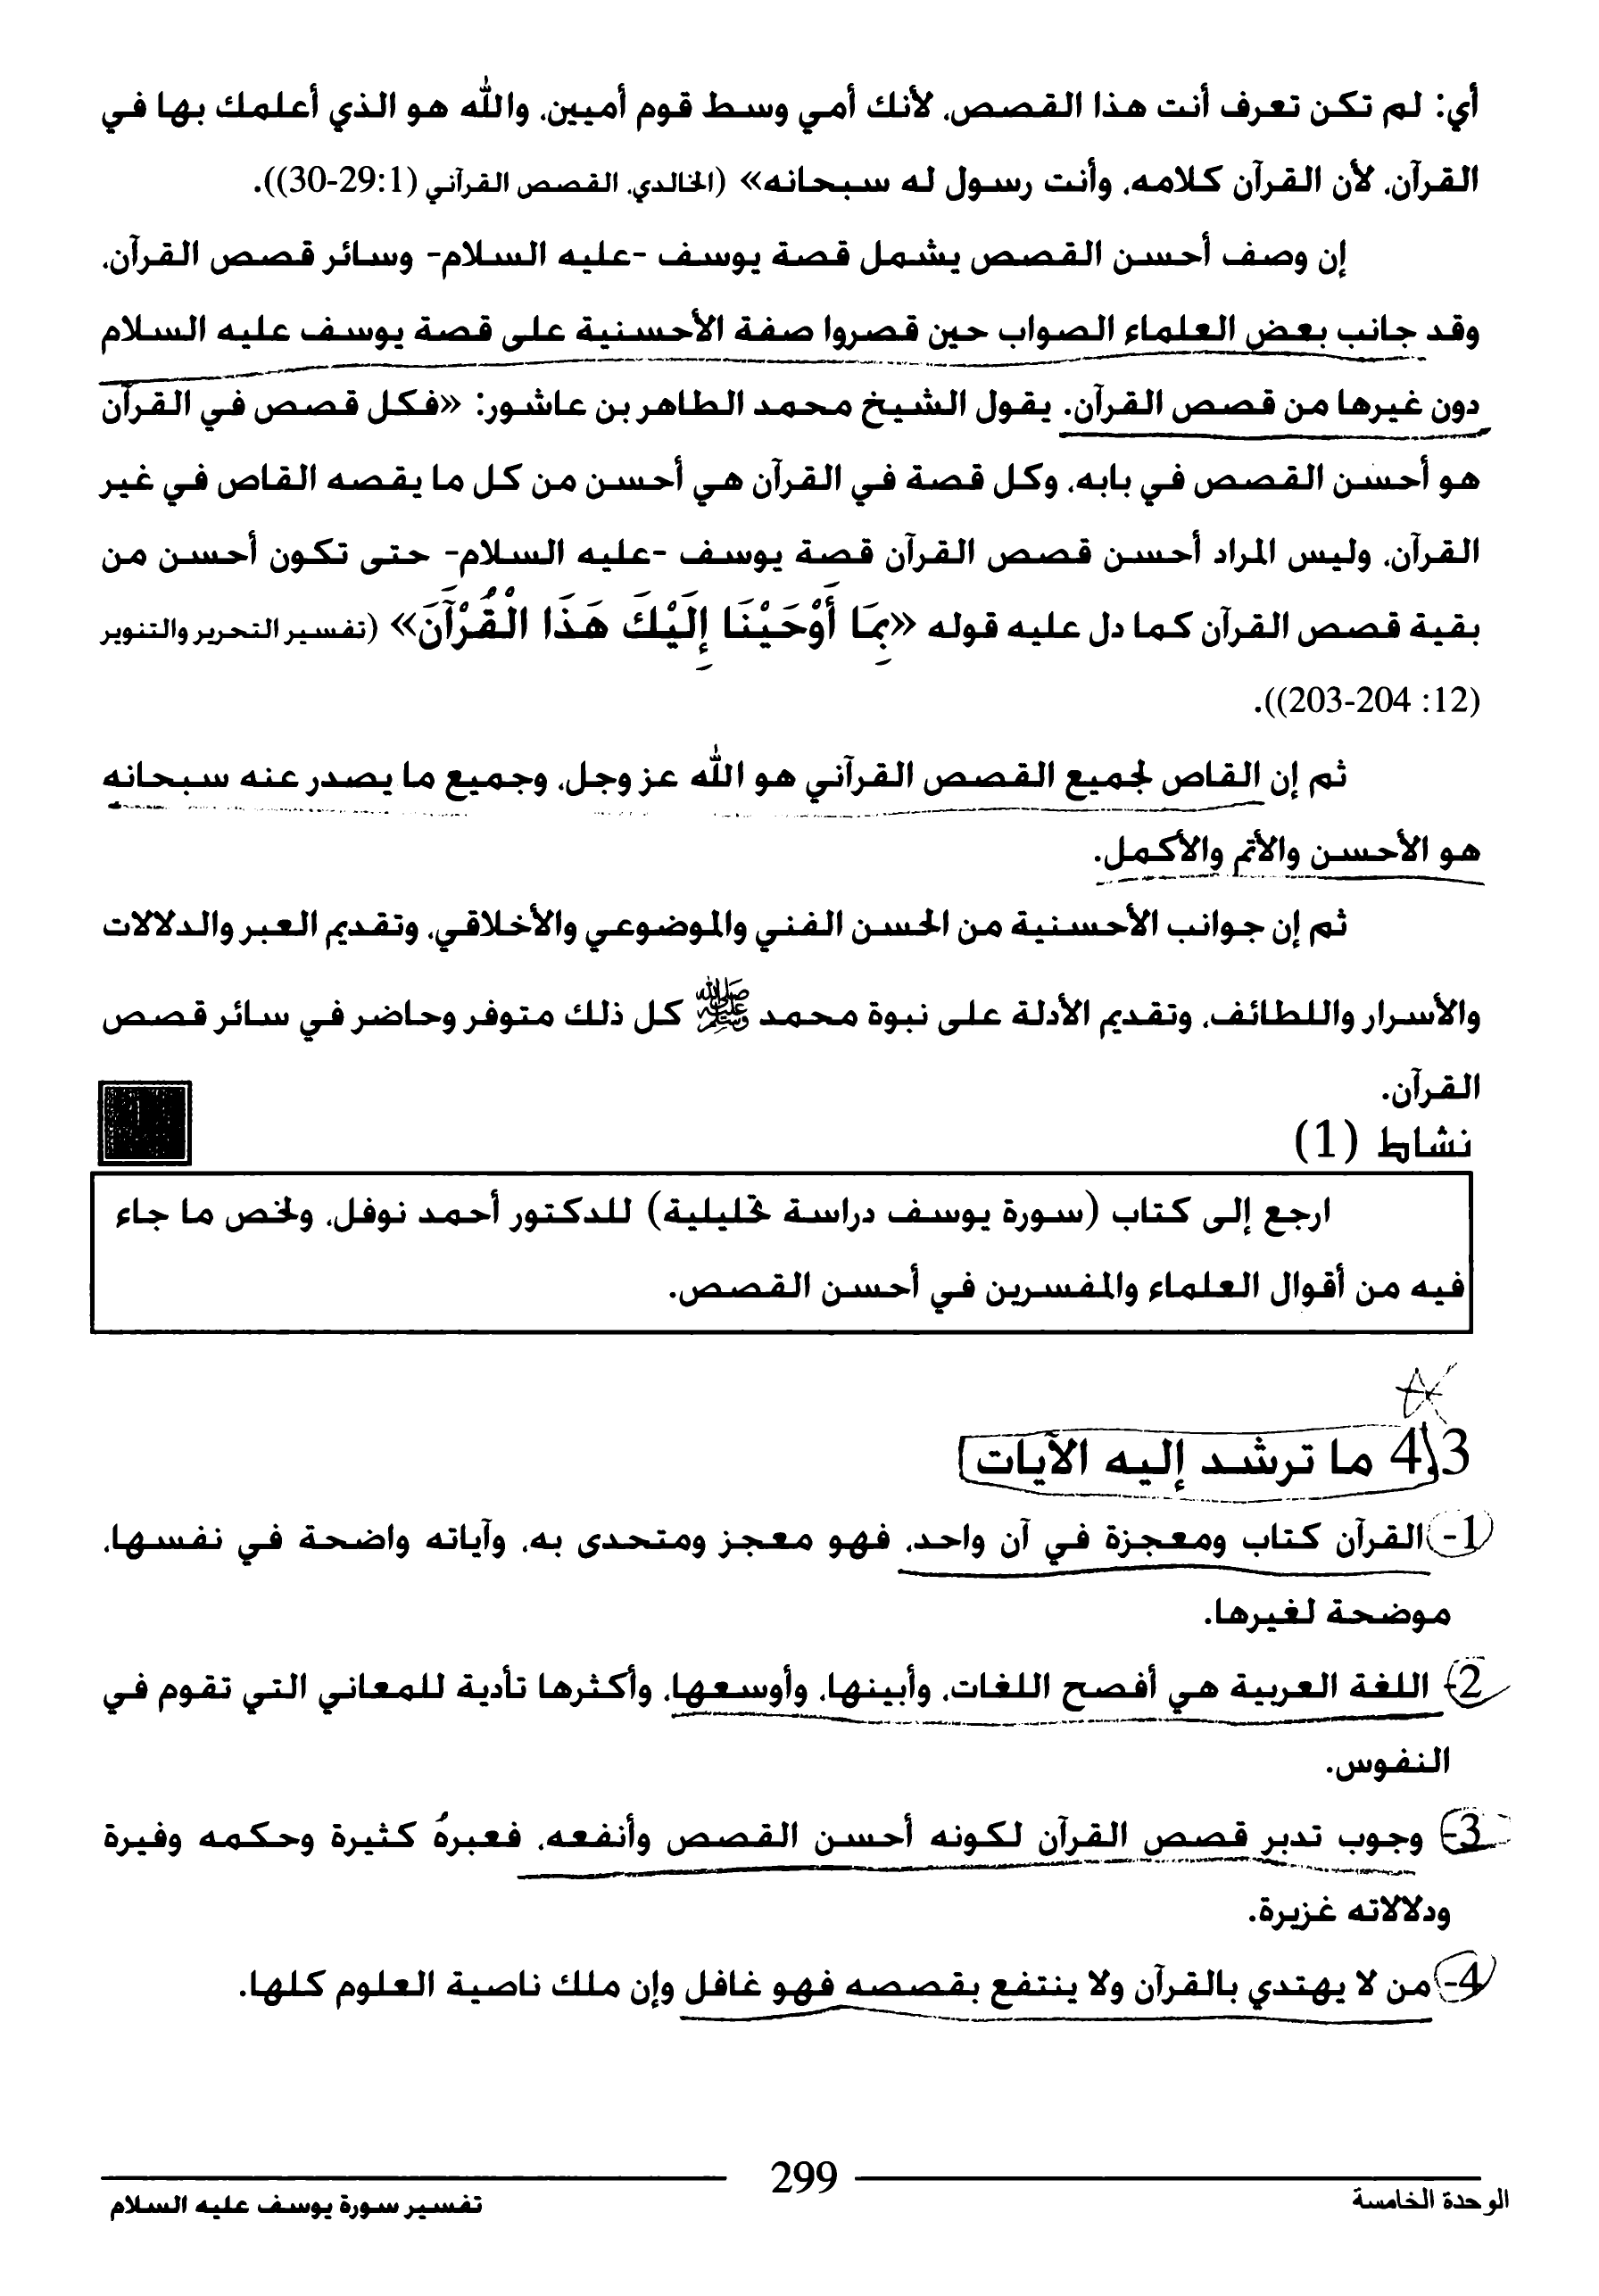 أي: لم تكن تعرف أنت هذا القصص، لأنك أمي وسط قوم أميين، والله هو الذي أعلمك بها في
القرآن، لأن القرآن كلامه، وأنت رسول له سبحانه» (الخالدي، القصص القرآني (1:29-30)).
إن وصف أحسن القصص يشمل قصة يوسف -عليه السلام- وسائر قصص القرآن،
وقد جانب بعض العلماء الصواب حين قصروا صفة الأحسنية على قصة يوسف عليه السلام
دون غيرها من قصص القرآن. يقول الشيخ محمد الطاهر بن عاشور: «فكل قصص في القرآن
هو أحسن القصص في بابه، وكل قصة في القرآن هي أحسن من كل ما يقصه القاص في غير
القرآن، وليس المراد أحسن قصص القرآن قصة يوسف -عليه السلام- حتى تكون أحسن من
بقية قصص القرآن كما دل عليه قوله «بِمَا أَوْحَيْنَا إِلَيْكَ هَذَا الْقُرْآَنَ» (تفسير التحرير والتنوير
(12: 203-204)).
ثم إن القاص لجميع القصص القرآني هو الله عز وجل، وجميع ما يصدر عنه سبحانه
هو الأحسن والأتم والأكمل.
ثم إن جوانب الأحسنية من الحسن الفني والموضوعي والأخلاقي، وتقديم العبر والدلالات
والأسرار واللطائف، وتقديم الأدلة على نبوة محمد ﷺ كل ذلك متوفر وحاضر في سائر قصص
القرآن.
نشاط (1)
ارجع إلى كتاب (سورة يوسف دراسة تحليلية) للدكتور أحمد نوفل، ولخص ما جاء
فيه من أقوال العلماء والمفسرين في أحسن القصص.
3\4 ما ترشد إليه الآيات
1- القرآن كتاب ومعجزة في آن واحد، فهو معجز ومتحدى به، وآياته واضحة في نفسها،
موضحة لغيرها.
2- اللغة العربية هي أفصح اللغات، وأبينها، وأوسعها، وأكثرها تأدية للمعاني التي تقوم في
النفوس.
3- وجوب تدبر قصص القرآن لكونه أحسن القصص وأنفعه، فعبرهُ كثيرة وحكمه وفيرة
ودلالاته غزيرة.
4- من لا يهتدي بالقرآن ولا ينتفع بقصصه فهو غافل وإن ملك ناصية العلوم كلها.
الوحدة الخامسة
299
تفسير سورة يوسف عليه السلام